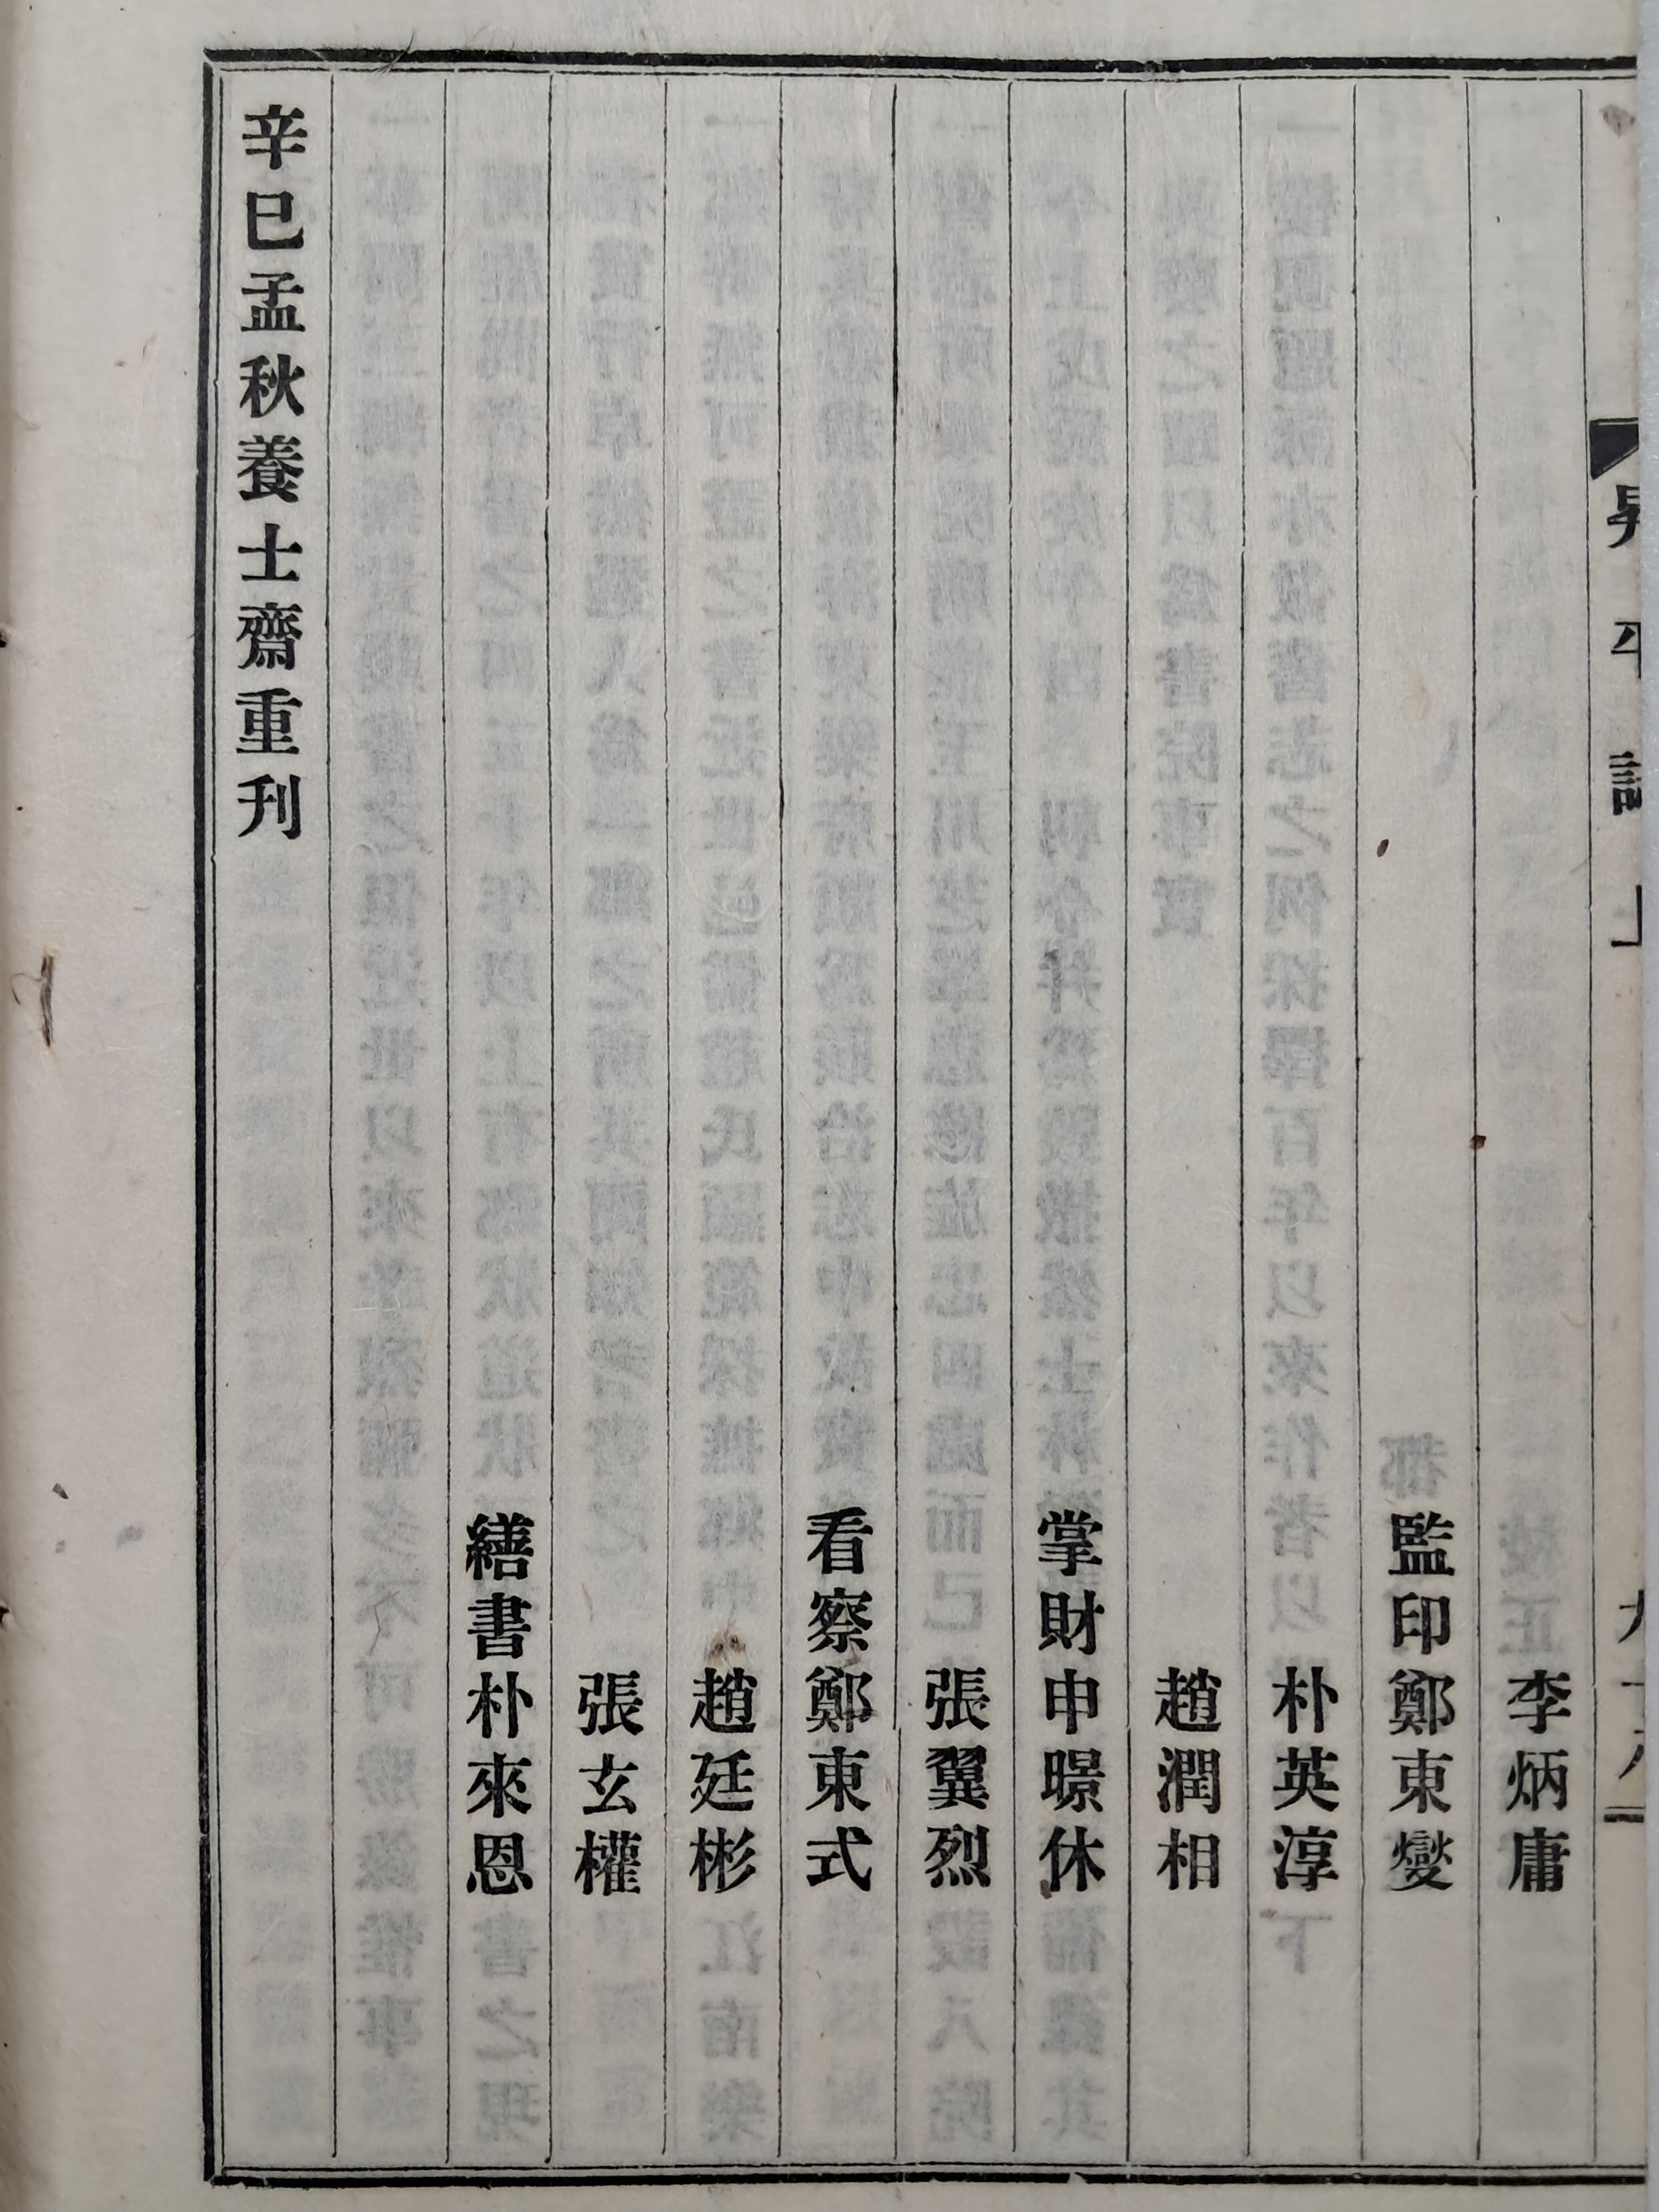 李炳庸
監印鄭東燮
朴英淳
趙潤相
掌財申暻休
張翼烈
看察鄭東式
趙廷彬
張玄權
繕書朴來恩
辛巳孟秋養士齋重刊